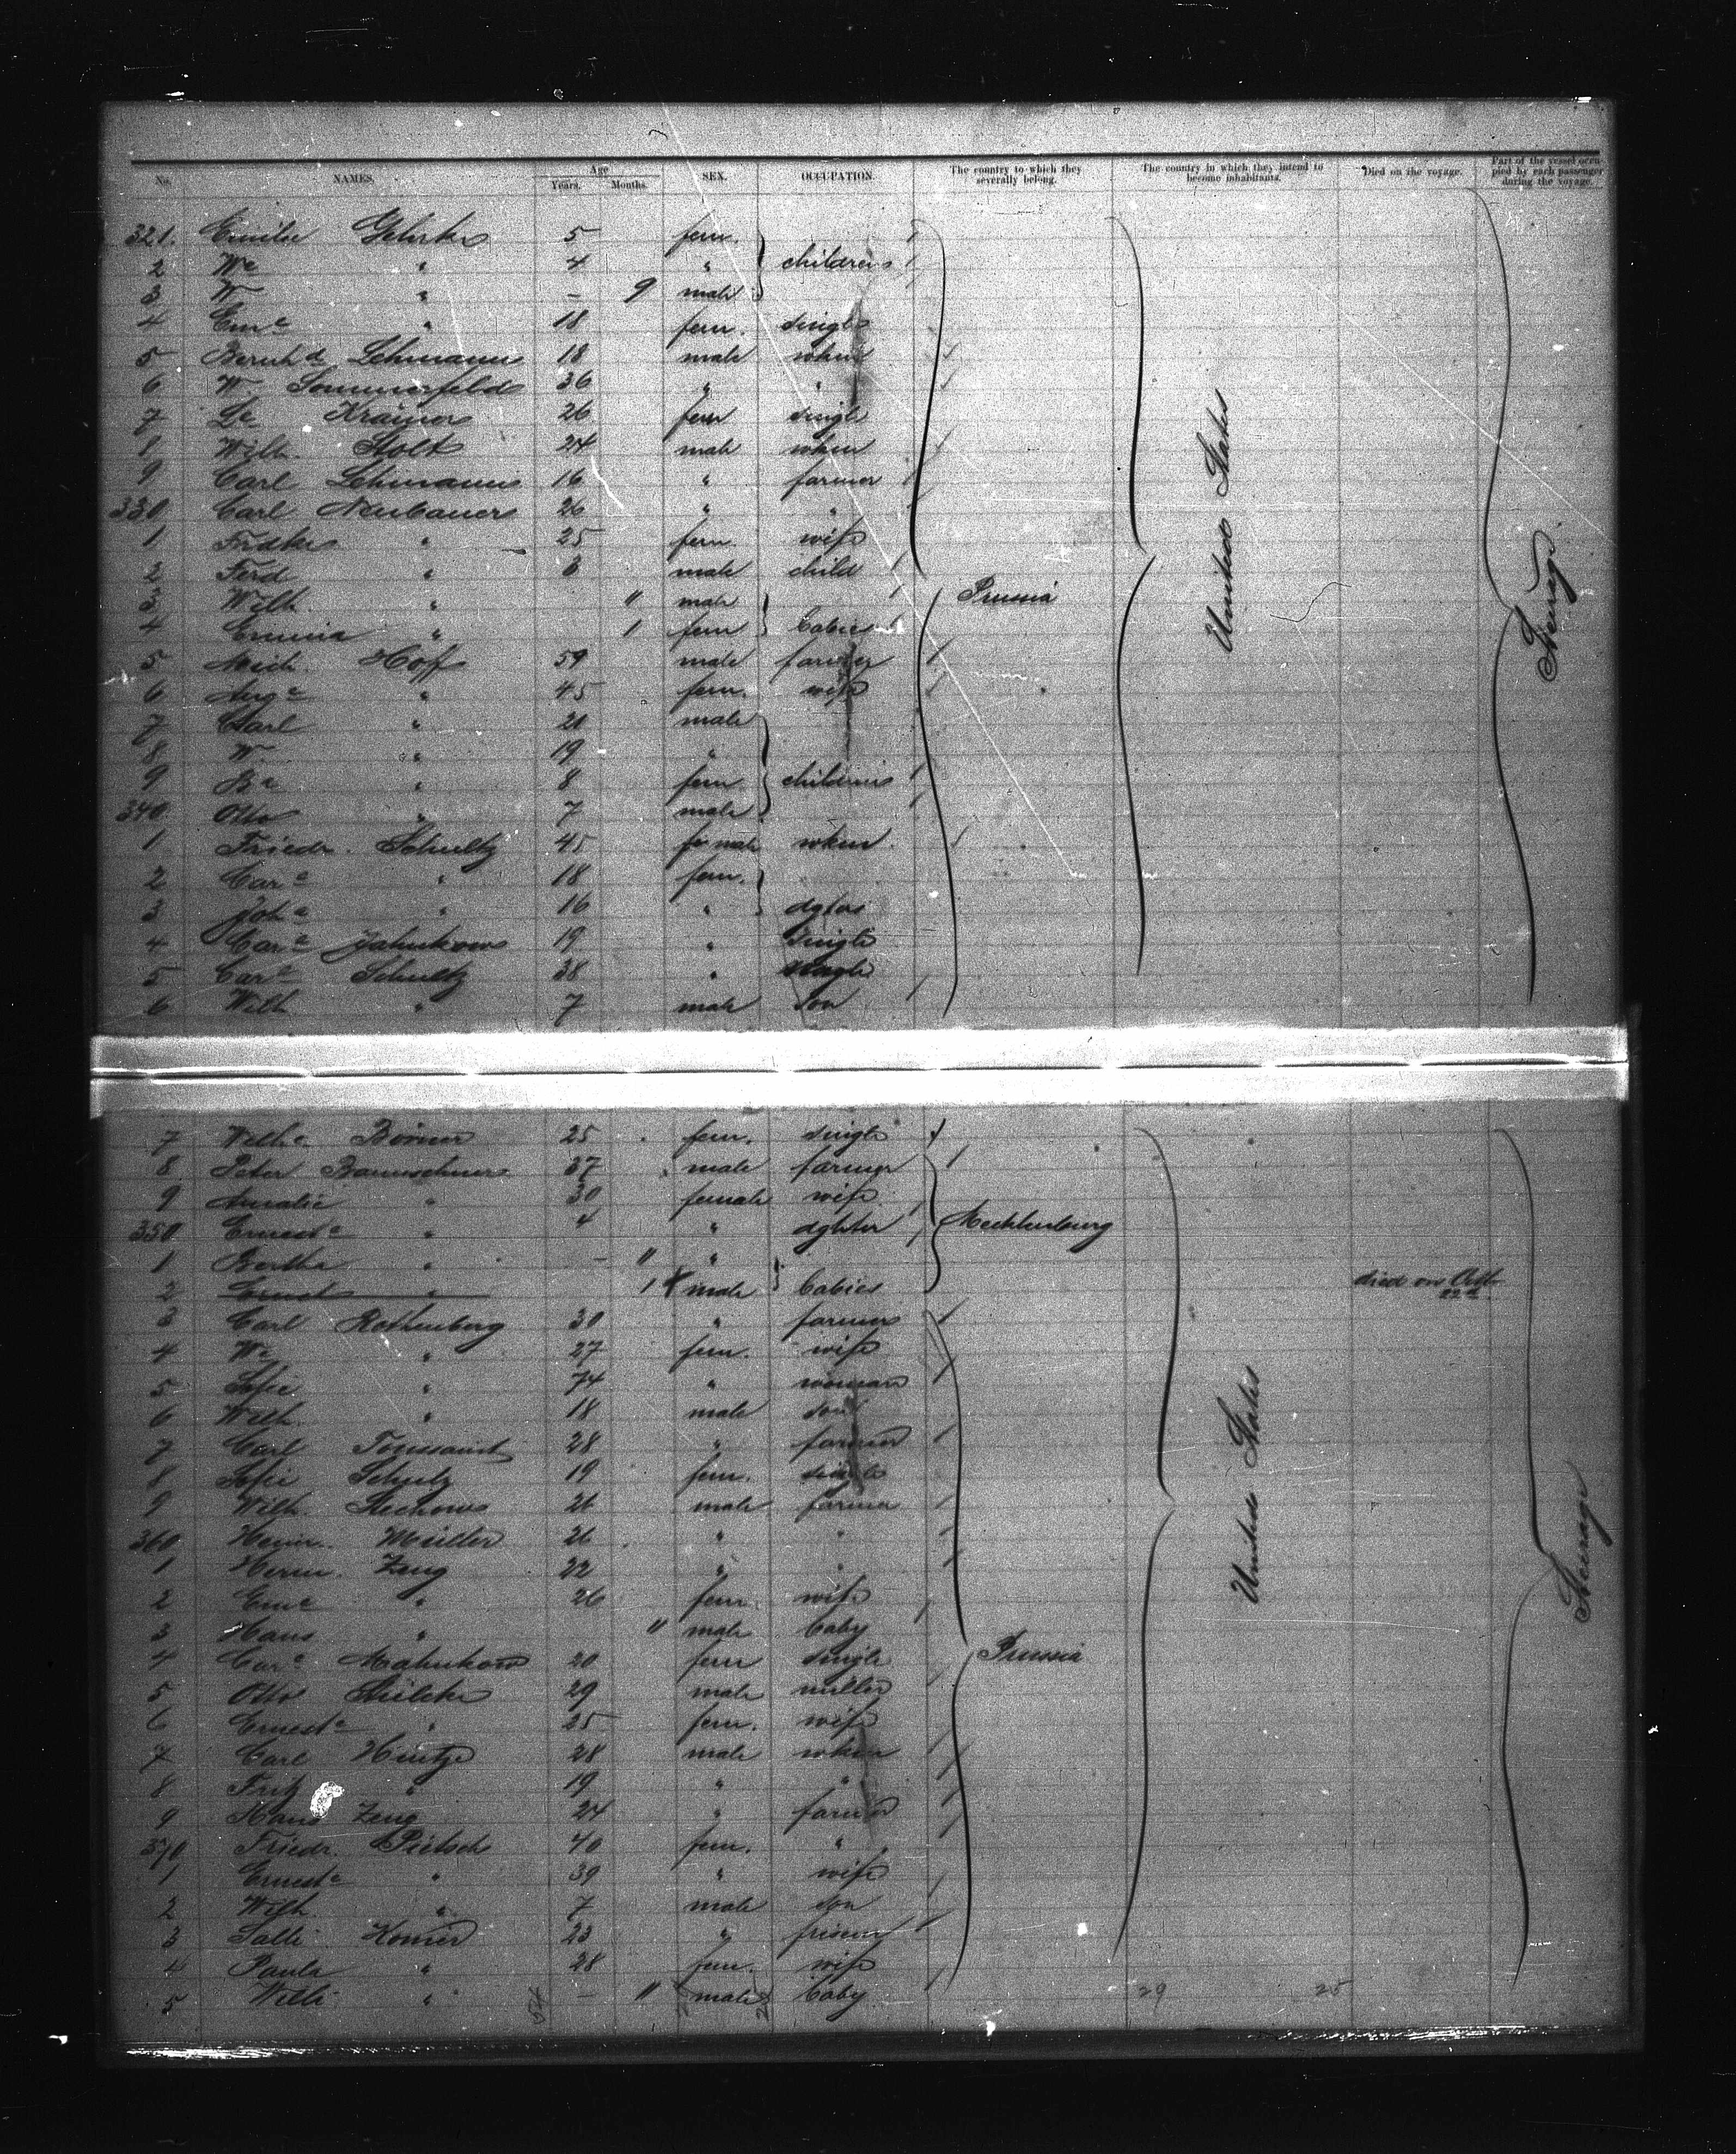 No. NAMES. Age Years. Months. SEX. OCCUPATION. The country to which they severally belong. The country in which they intend to become inhabitants. Died on the voyage. Part of the vessel occupied by each passenger during the voyage.
321. Emilie 5 fem.
2 We " 4 " children
3 W " – 9 male
4 Em e " 18 fem. single
5 Bernhd Lehmann 18 male wkm
6 W Sommerfeld 36 " "
7 Le Krämer 26 fem single
8 Wilh. Stolt 24 male wkm
9 Carl Lehmann 16 " farmer
330 Carl Neubauer 26 " "
1 " 25 fem. wife
2 Ferd " 3 male child
3 Wilh. " 11 male
4 Emma " 1 fem babies
Prussia
United States
Steerage.
5 Mich. Hoff 59 male farmer
6 Aug e " 45 fem. wife
7 Carl " 21 male
8 W " 19 "
9 B e " 8 fem children
340. Otto " 7 male
1 Friedr. Schultz 45 male wkm
2 Car e " 18 fem.
3 Joh e " 16 " dgtrs
4 Car e Jahnkow 19 " single
5 Car e Schultz 38 " single
6 Wilh " 7 male son
7 Wilh e 25 fem. single
8 Peter 37 male farmer
9 Amalie " 30 female wife
350 Ernest e " 4 " dghter Mecklenburg
1 Bertha " – 11 "
2 Ernst " 1 male babies died on Octb 22d
3 Carl Rothenberg 30 " farmer
4 We " 27 fem. wife
5 Sofie " 74 " woman
6 Wilh. " 18 male son
7 Carl Toussaint 28 " farmer
8 Sofie Schulz 19 fem. single
9 Wilh. Stechow 21 male farmer
United States
Steerage
360 Heinr. Müller 26 " "
1 Herm. Zeug 22 " "
2 Em e " 26 fem. wife
3 Hans " 11 male baby
4 Car e Mahnkow 20 fem single Prussia
5 Otto 29 male miller
6 Ernest e " 25 fem. wife
7 Carl Hintze 28 male wkm
8 Fritz " 19 " "
9 Hans Zeug 24 " farmer
370 Friedr. Pietsch 40 fem. "
1 Ernest e " 39 " wife
2 Wilh " 7 male son
3 Salli 23 "
4 Paula " 28 fem. wife
5 Willi " – 11 male baby
29 25